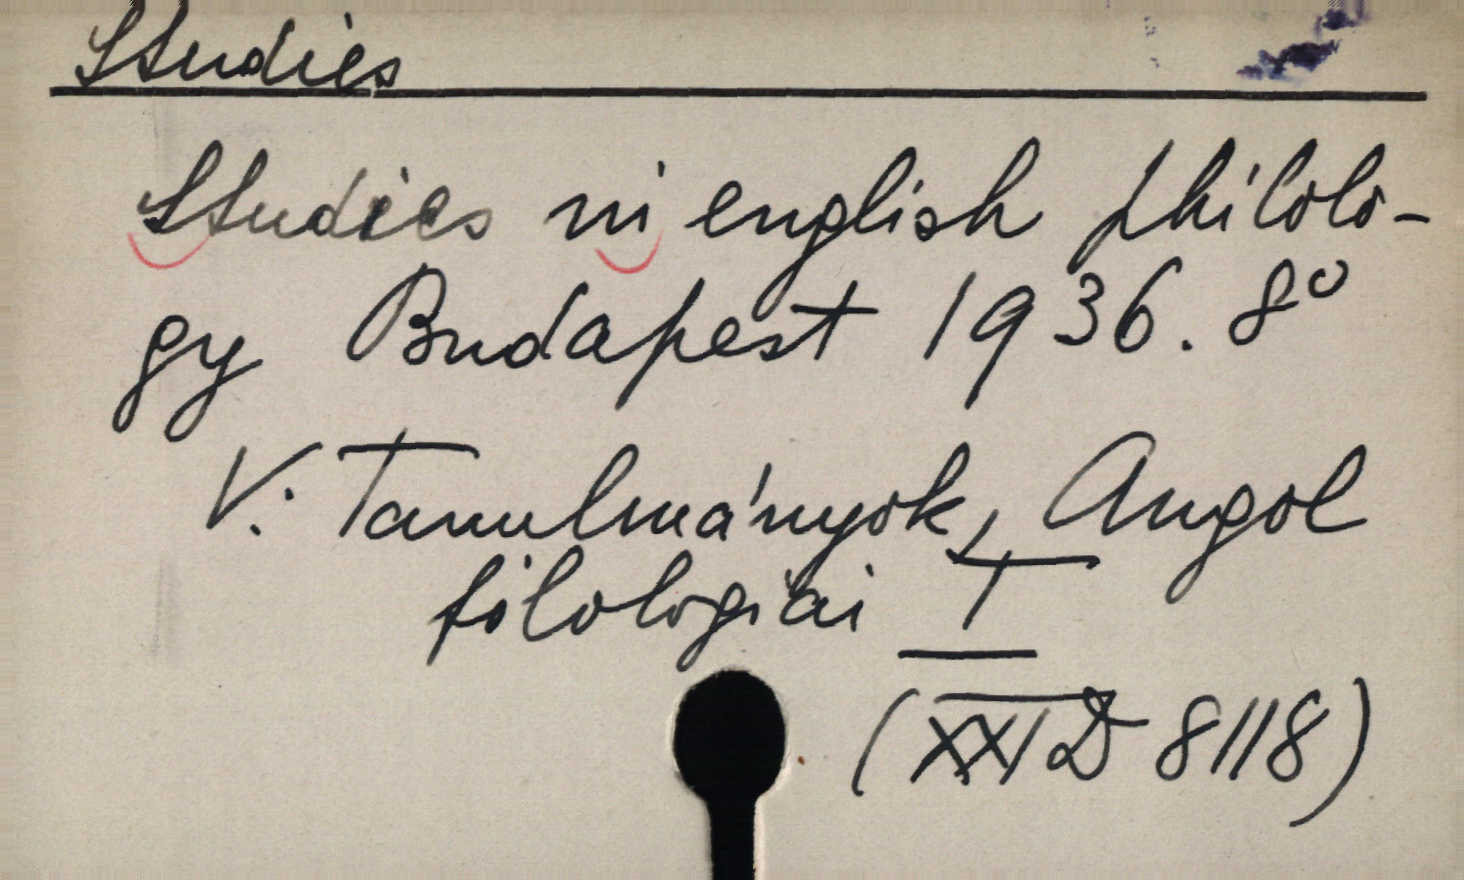 Studies
Studies in english philolo-
gy Budapest 1936. 8°
V: Tanulmányok, Angol
filologiai I
(XXI D 8118)